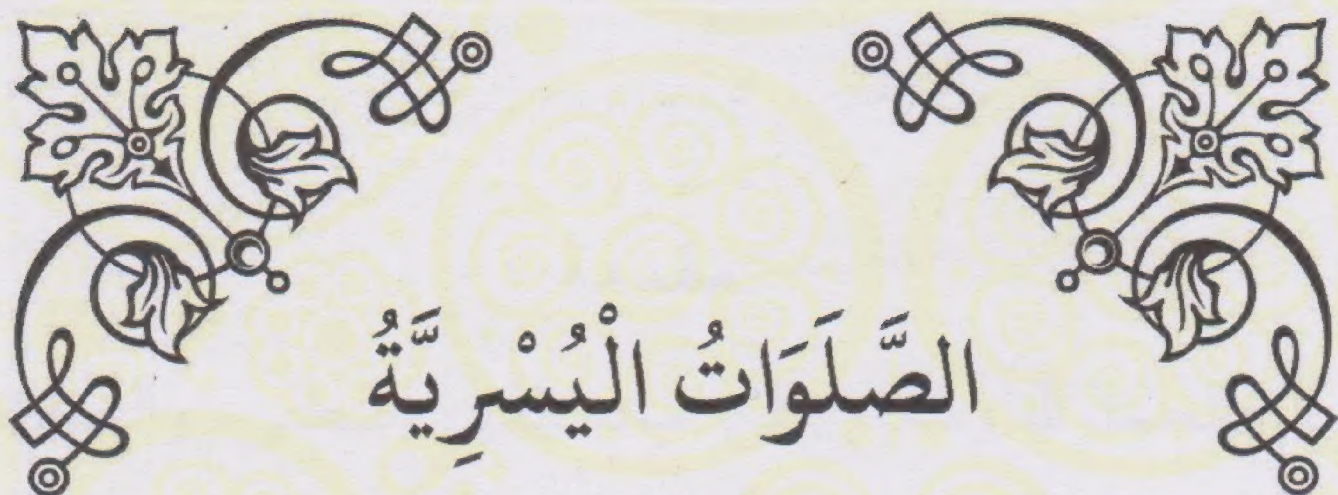 الصَّلَوَاتُ الْيُسْرِيَّةُ